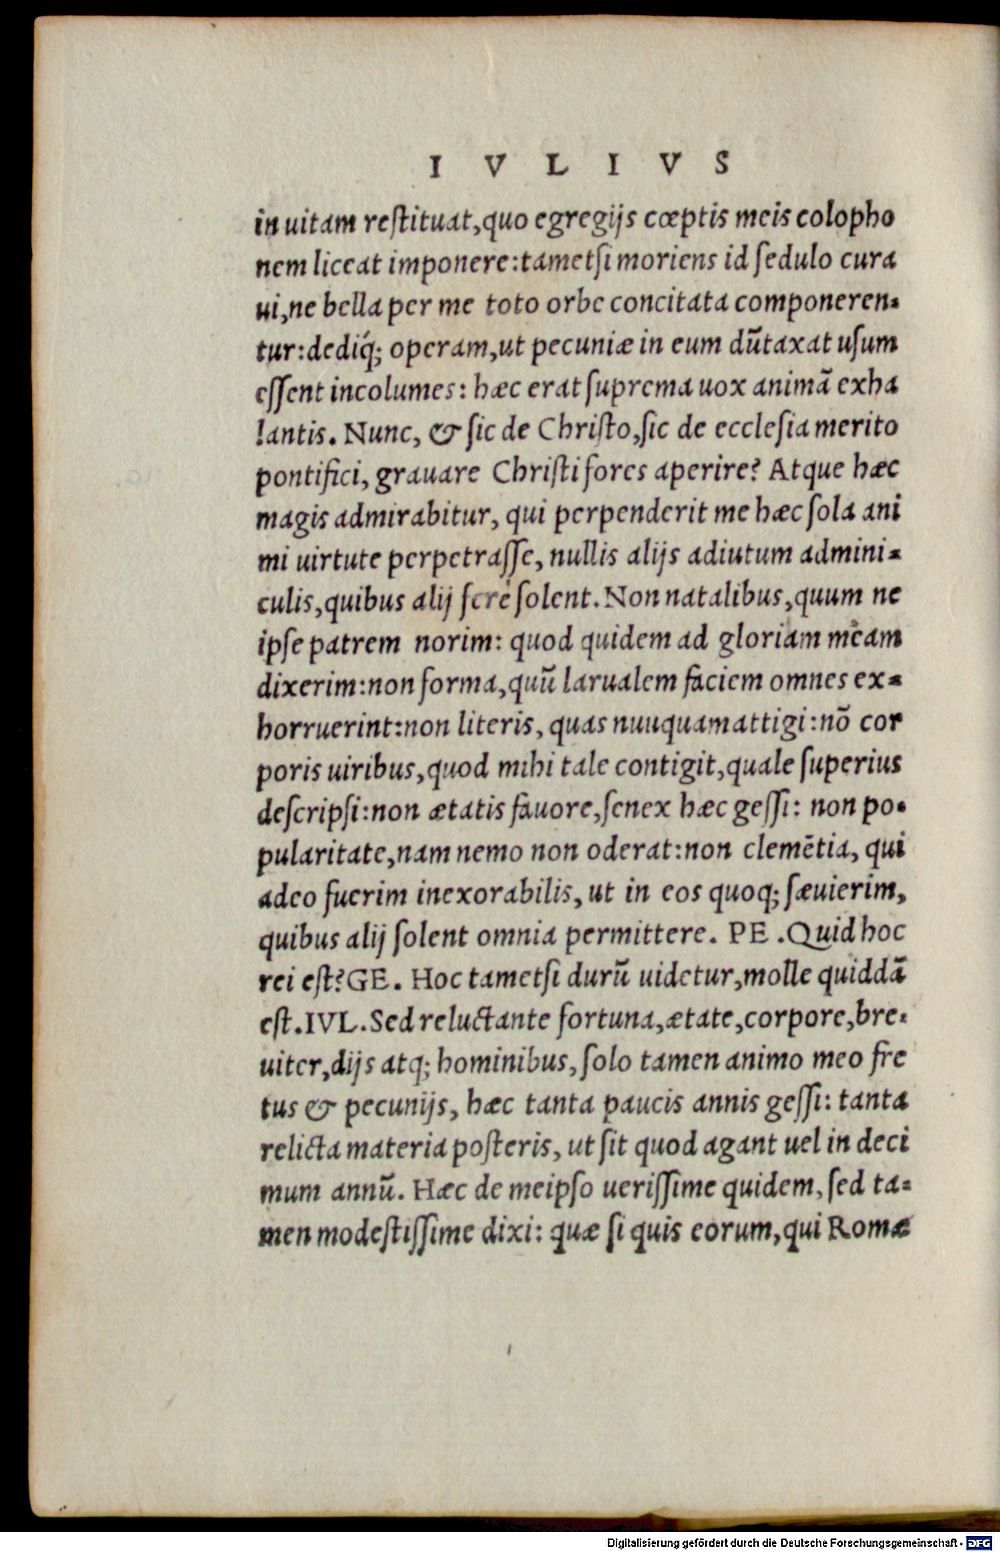 I V L I V S
in uitam reſtituat,quo egregijs cœptis meis colopho
nem liceat imponere:tametſi moriens id ſedulo cura
ui,ne bella per me toto orbe concitata componeren-
tur:dediq́; operam,ut pecuniæ in eum dũtaxat uſum
eſſent incolumes: hæc erat ſuprema uox animã exha
lantis. Nunc, & ſic de Chriſto,ſic de eccleſia merito
pontifici, grauare Chriſti fores aperire? Atque hæc
magis admirabitur, qui perpenderit me hæc ſola ani
mi uirtute perpetraſſe, nullis alijs adiutum admini-
culis,quibus alij ferè ſolent. Non natalibus,quum ne
ipſe patrem norim: quod quidem ad gloriam meam
dixerim:non forma,quũ larualem faciem omnes ex-
horruerint:non literis, quas nuuquam attigi:nõ cor
poris uiribus,quod mihi tale contigit,quale ſuperius
deſcripſi:non ætatis fauore,ſenex hæc geſſi: non po-
pularitate,nam nemo non oderat:non clemẽtia, qui
adeo fuerim inexorabilis, ut in eos quoq; ſæuierim,
quibus alij ſolent omnia permittere. PE .Quid hoc
rei eſt?GE. Hoc tametſi durũ uidetur,molle quiddã
eſt.IVL.Sed reluctante fortuna,ætate,corpore,bre-
uiter,dijs atq; hominibus, ſolo tamen animo meo fre
tus & pecunijs, hæc tanta paucis annis geſſi: tanta
relicta materia poſteris, ut ſit quod agant uel in deci
mum annũ. Hæc de meipſo ueriſſime quidem, ſed ta-
men modeſtiſſime dixi: quæ ſi quis eorum,qui Romæ
Digitalisierung gefördert durch die Deutsche Forschungsgemeinschaft - DFG